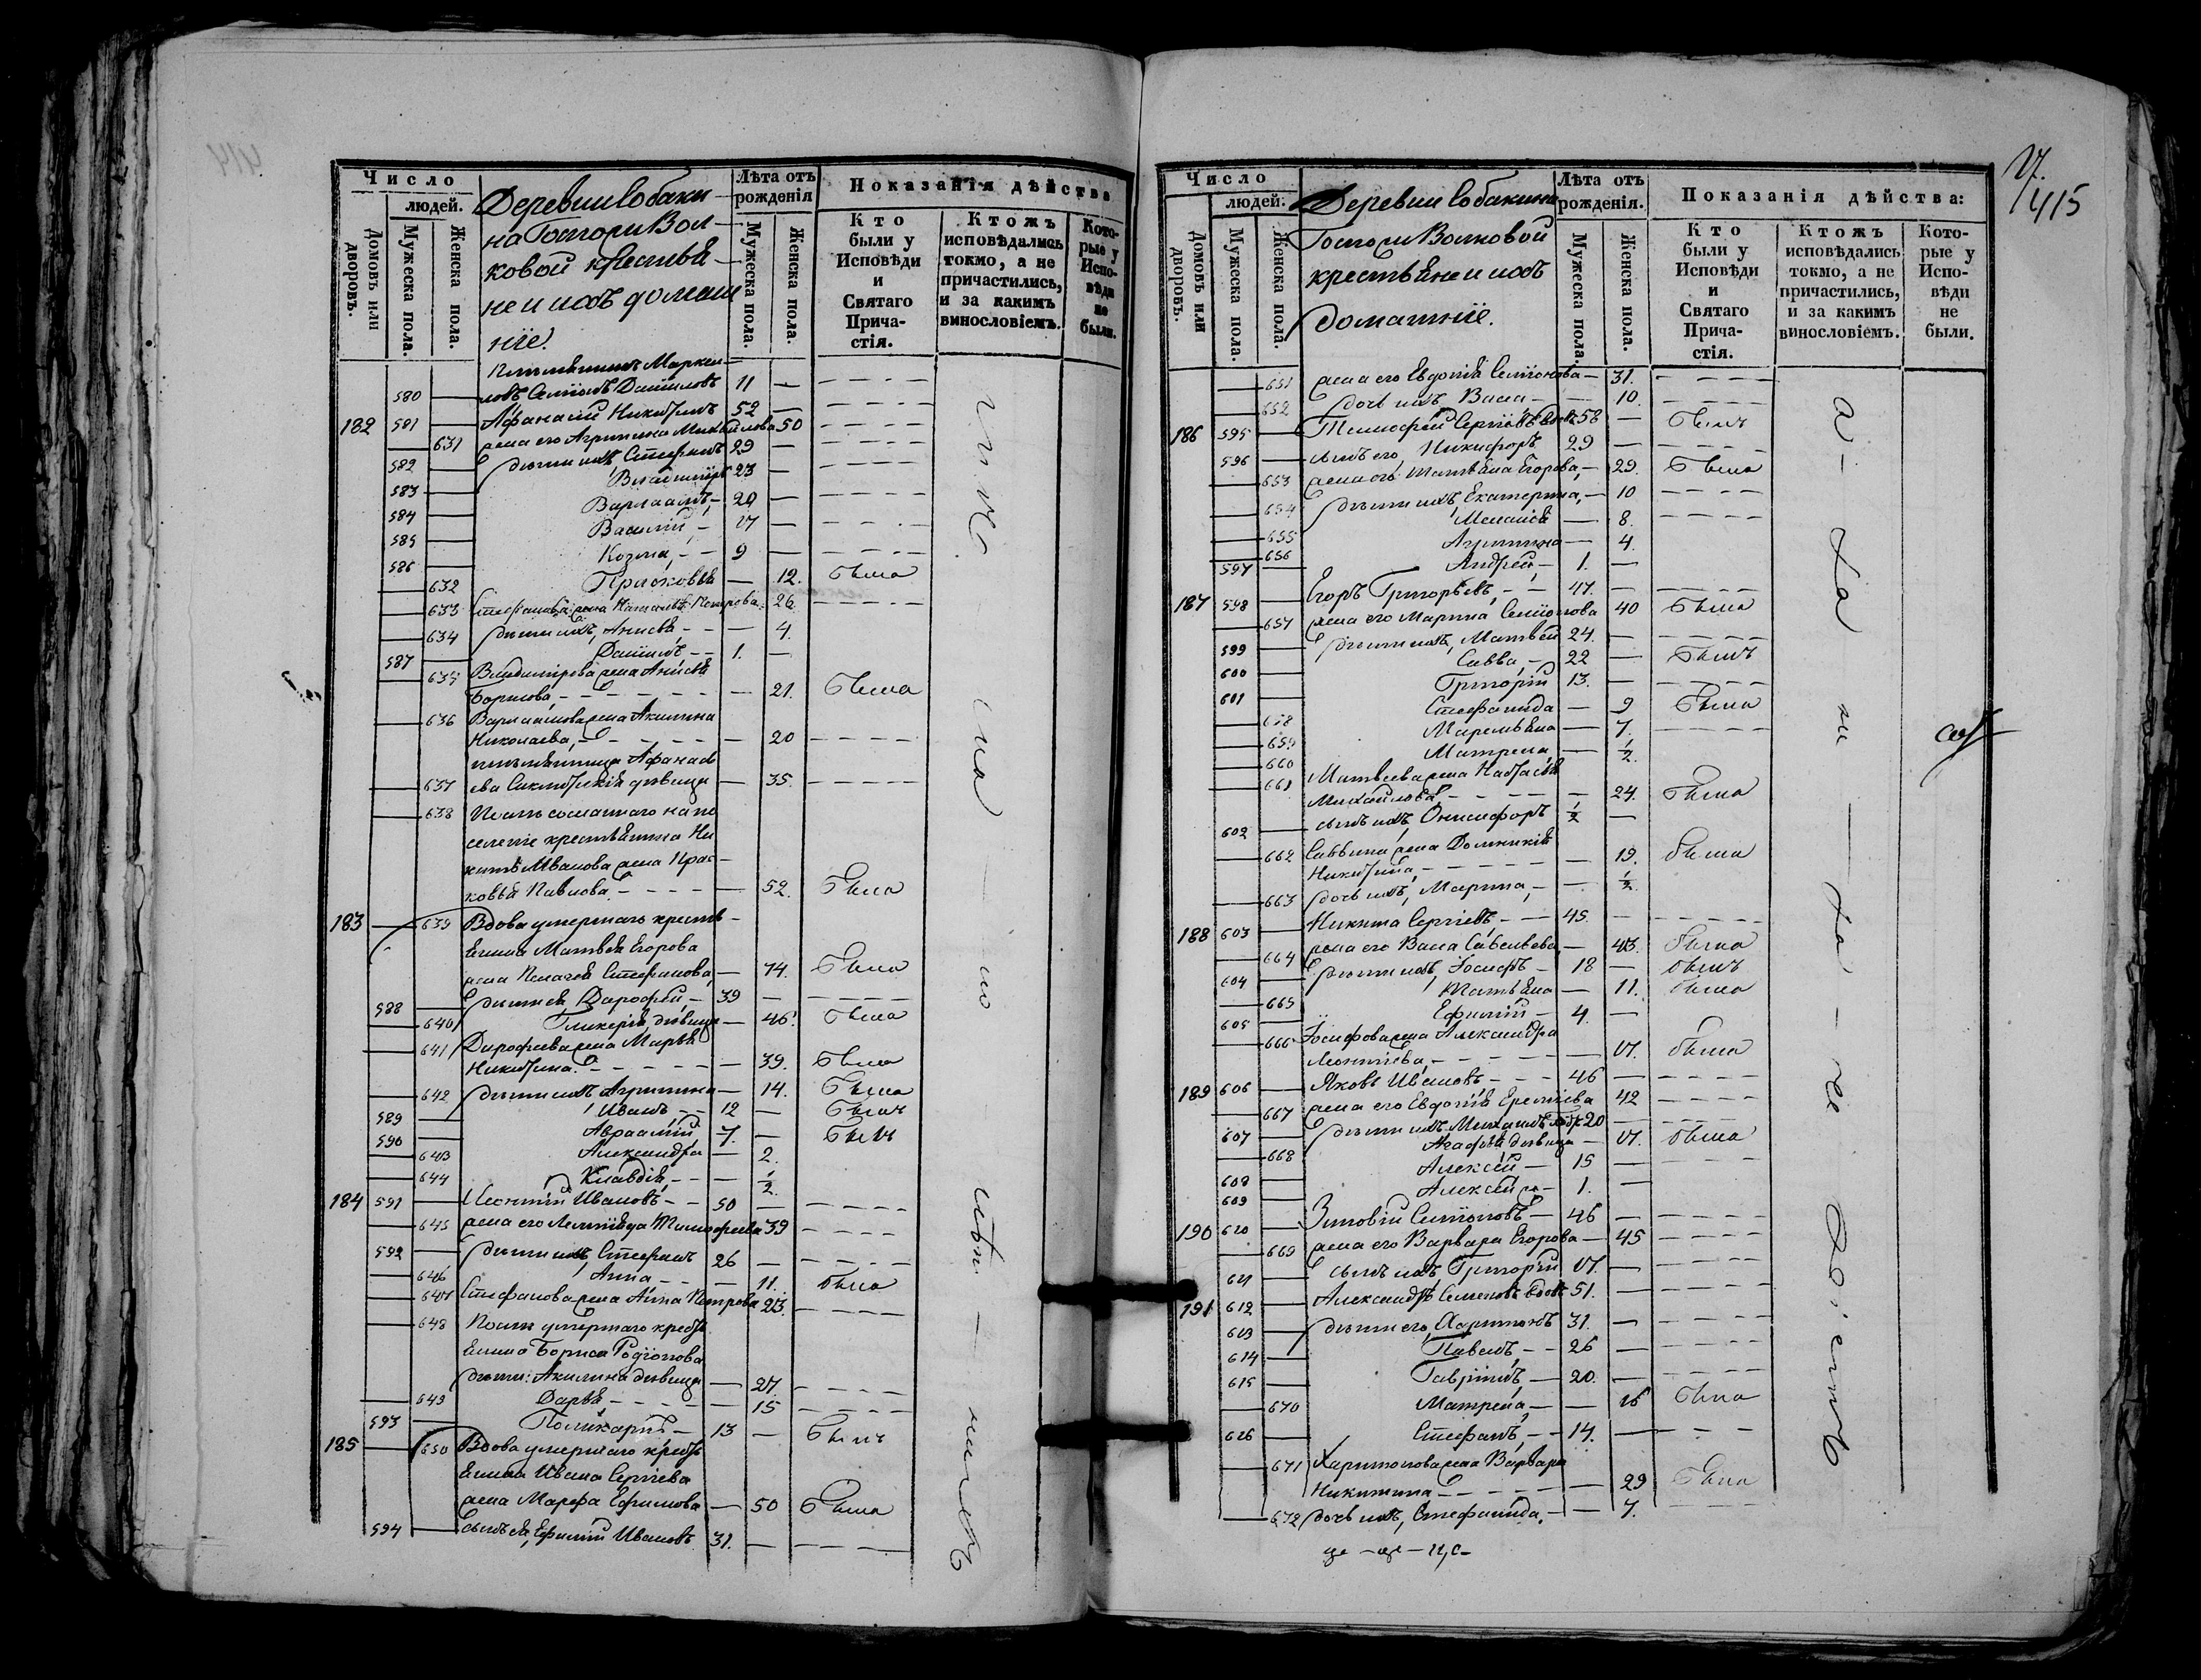 414
Число
людей.
Домовъ или дворовъ.
Мужеска пола.
Женска пола.
Деревни Собаки
на Госпожи Вол-
ковой крестья-
не и ихъ домаш
ніе.
Лѣта отъ рожденія
Мужеска пола.
Женска пола.
Показанія дѣйства
Кто были у Исповѣди и Святаго Причастія.
Ктожъ исповѣдались токмо, а не причастились, и за какимъ винословіемъ.
Которые у Исповѣди не были.
580 Семіонъ Даниловъ 11 —
182 581 Афанасій Никитинъ 52 —
631 жена его Агрипина Михайлова 50
582 дѣти ихъ, Стефанъ 29 —
583 Владиміръ 23 —
584 Варлаамъ, — 20 —
585 Василій, — 17 —
586 Козма, — — 9 —
632 Прасковья — 12. была
633 Стефанова жена Наталья Петрова 26.
634 дѣти ихъ, Анисья, — — 4.
587 Даніилъ — — 1. —
635 Владимірова жена Анисья
Борисова, — — — 21. была
636 Варлаамова жена Акилина
Николаева, — — — 20
племянница Афанась
637 ева дѣвица — 35.
638 Посль сосланнаго на по
селеніе крестьянина Ни
киты Иванова жена Прас-
ковья Павлова. — — — 52. была
183 639 Вдова умершаго кресть-
янина Матвѣя Егорова
жена Пелагея Стефанова, — 74. была
588 дѣти ея Дорофей, — 39 —
640 Гликерія, дѣвица — 46. была
641 Дорофеева жена Марья
Никитина. — — — 39. была
642 дѣти ихъ Агрипина — 14. была
589 Иванъ, — — 12 — былъ
590 Авраамій, 7. — былъ
643 Александра — 2.
644 Клавдія, — — 1/2.
184 591 Леонтій Ивановъ — — 50 —
645 жена его Тимофеева 39
592 дѣти ихъ, Стефанъ 26 —
646 Анна — — 11. была
647 Стефанова жена Анна Петрова 23.
648 Посль умершаго кресть
янина Бориса Родіонова
дѣти: Акилина дѣвица — 27.
649 Дарья, — — — 15
593 Поликарпъ, — 13 — былъ
185 650 Вдова умершаго кресть
янина Ивана Сергіева
жена Марфа Ефимова — 50 была
594 сынъ ея, Ефимій Ивановъ 31. —
415
Число
людей.
Домовъ или дворовъ.
Мужеска пола.
Женска пола.
Деревни Собакина
Госпожи Волковой
крестьяне и ихъ
домашніе.
Лѣта отъ рожденія.
Мужеска пола.
Женска пола.
Показанія дѣйства:
Кто были у Исповѣди и Святаго Причастія.
Ктожъ исповѣдались токмо, а не причастились, и за какимъ винословіемъ.
Которые у Исповѣди не были.
651 жена его Евдокія Семіонова — 31.
652 дочь ихъ Васса — — 10.
186 595 Тимофей Сергіевъ вдовъ 58 — былъ
596 сынъ его, Никифоръ 29 —
653 жена его Татьяна Егорова, — 29. была
654 дѣти ихъ, Екатерина, — 10
655 Меланія — 8.
656 Агрипина — 4.
597 Андрей, — 1. —
187 598 Егоръ Григорьевъ, — — 47. —
657 жена его Марина Семіонова 40 была
599 дѣти ихъ, Матвей 24. —
600 Савва, — 22 — былъ
601 Григорій 13. —
658 Стефанида — 9 была
659 Маремьяна — 7.
660 Матрена, — 1/2.
661 Матвеева жена Настасья
Михайлова, — — — 24. была
602 сынъ ихъ, Онисифоръ 1/2 —
662 Саввина жена Домникія
Никитина, — — — 19. была
663 дочь ихъ, Марина, — — 1/2.
188 603 Никита Сергіевъ, — — 45. —
664 жена его Васса Савельева, — 43. была
604 дѣти ихъ, Іосифъ — 18 — былъ
665 Татьяна — 11. была
605 Ефимій — 4. —
666 Іосифова жена Александра
Леонтіева, — — — 17. была
189 606 Яковъ Ивановъ — — 46 —
667 жена его Евдокія Еремѣева 42
607 дѣти ихъ 20
668 Агафья дѣвица — 17. была
608 Алексѣй — 15 —
609 Алексѣй — 1. —
190 610 Зиновій Семіоновъ — 46 —
669 жена его Варвара Егорова — 45
611 сынъ ихъ, Григорій 17. —
191 612 Александръ Семеновъ вдовъ 51. —
613 дѣти его, Харитонъ 31. —
614 Павелъ, — — 26 —
615 Гавріилъ, — 20. —
670 Матрена, — — 16 была
616 Стефанъ, — — 14. —
671 Харитонова жена Варвара
Никитина — — — 29 была
672 дочь ихъ, Стефанида, — — 7.